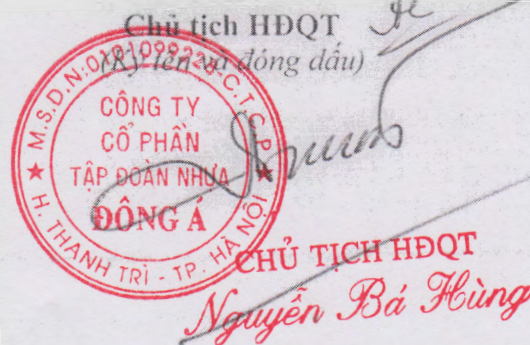 Chủ tịch HĐQT
(Ký tên và đóng dấu)
M.S.D.N:0101099228-C.T.C.P
CÔNG TY
CỔ PHẦN
TẬP ĐOÀN NHỰA
ĐÔNG Á
H. THANH TRÌ - TP. HÀ NỘI
CHỦ TỊCH HĐQT
Nguyễn Bá Hùng